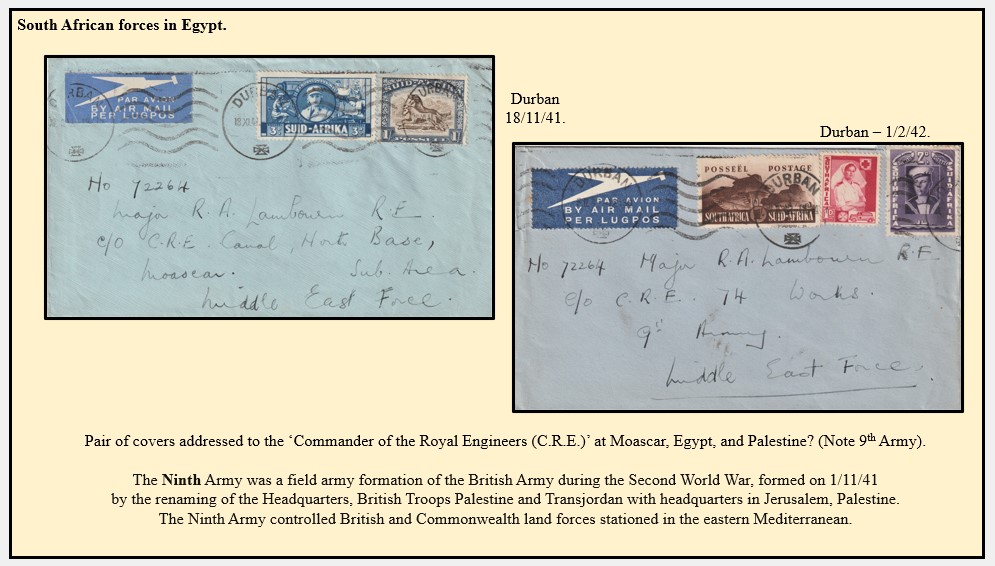 South African forces in Egypt.
PAR AVION
BY AIR MAIL
PER LUGPOS
DURBAN
3d SUID-AFRIKA 3d
DURBAN
No 72264
Major R.A. Lambourn R.E.
c/o C.R.E. Canal, North Base,
Moascar. Sub. Area.
Middle East Force.
Durban
18/11/41.
Durban – 1/2/42.
PAR AVION
BY AIR MAIL
PER LUGPOS
DURBAN
POSSEËL POSTAGE
SOUTH AFRICA SUID-AFRIKA
DURBAN
SUID-AFRIKA
No 72264 Major R.A. Lambourn R.E
c/o C.R.E. 74 Works.
9th Army.
Middle East Force.
Pair of covers addressed to the ‘Commander of the Royal Engineers (C.R.E.)’ at Moascar, Egypt, and Palestine? (Note 9th Army).
The Ninth Army was a field army formation of the British Army during the Second World War, formed on 1/11/41
by the renaming of the Headquarters, British Troops Palestine and Transjordan with headquarters in Jerusalem, Palestine.
The Ninth Army controlled British and Commonwealth land forces stationed in the eastern Mediterranean.